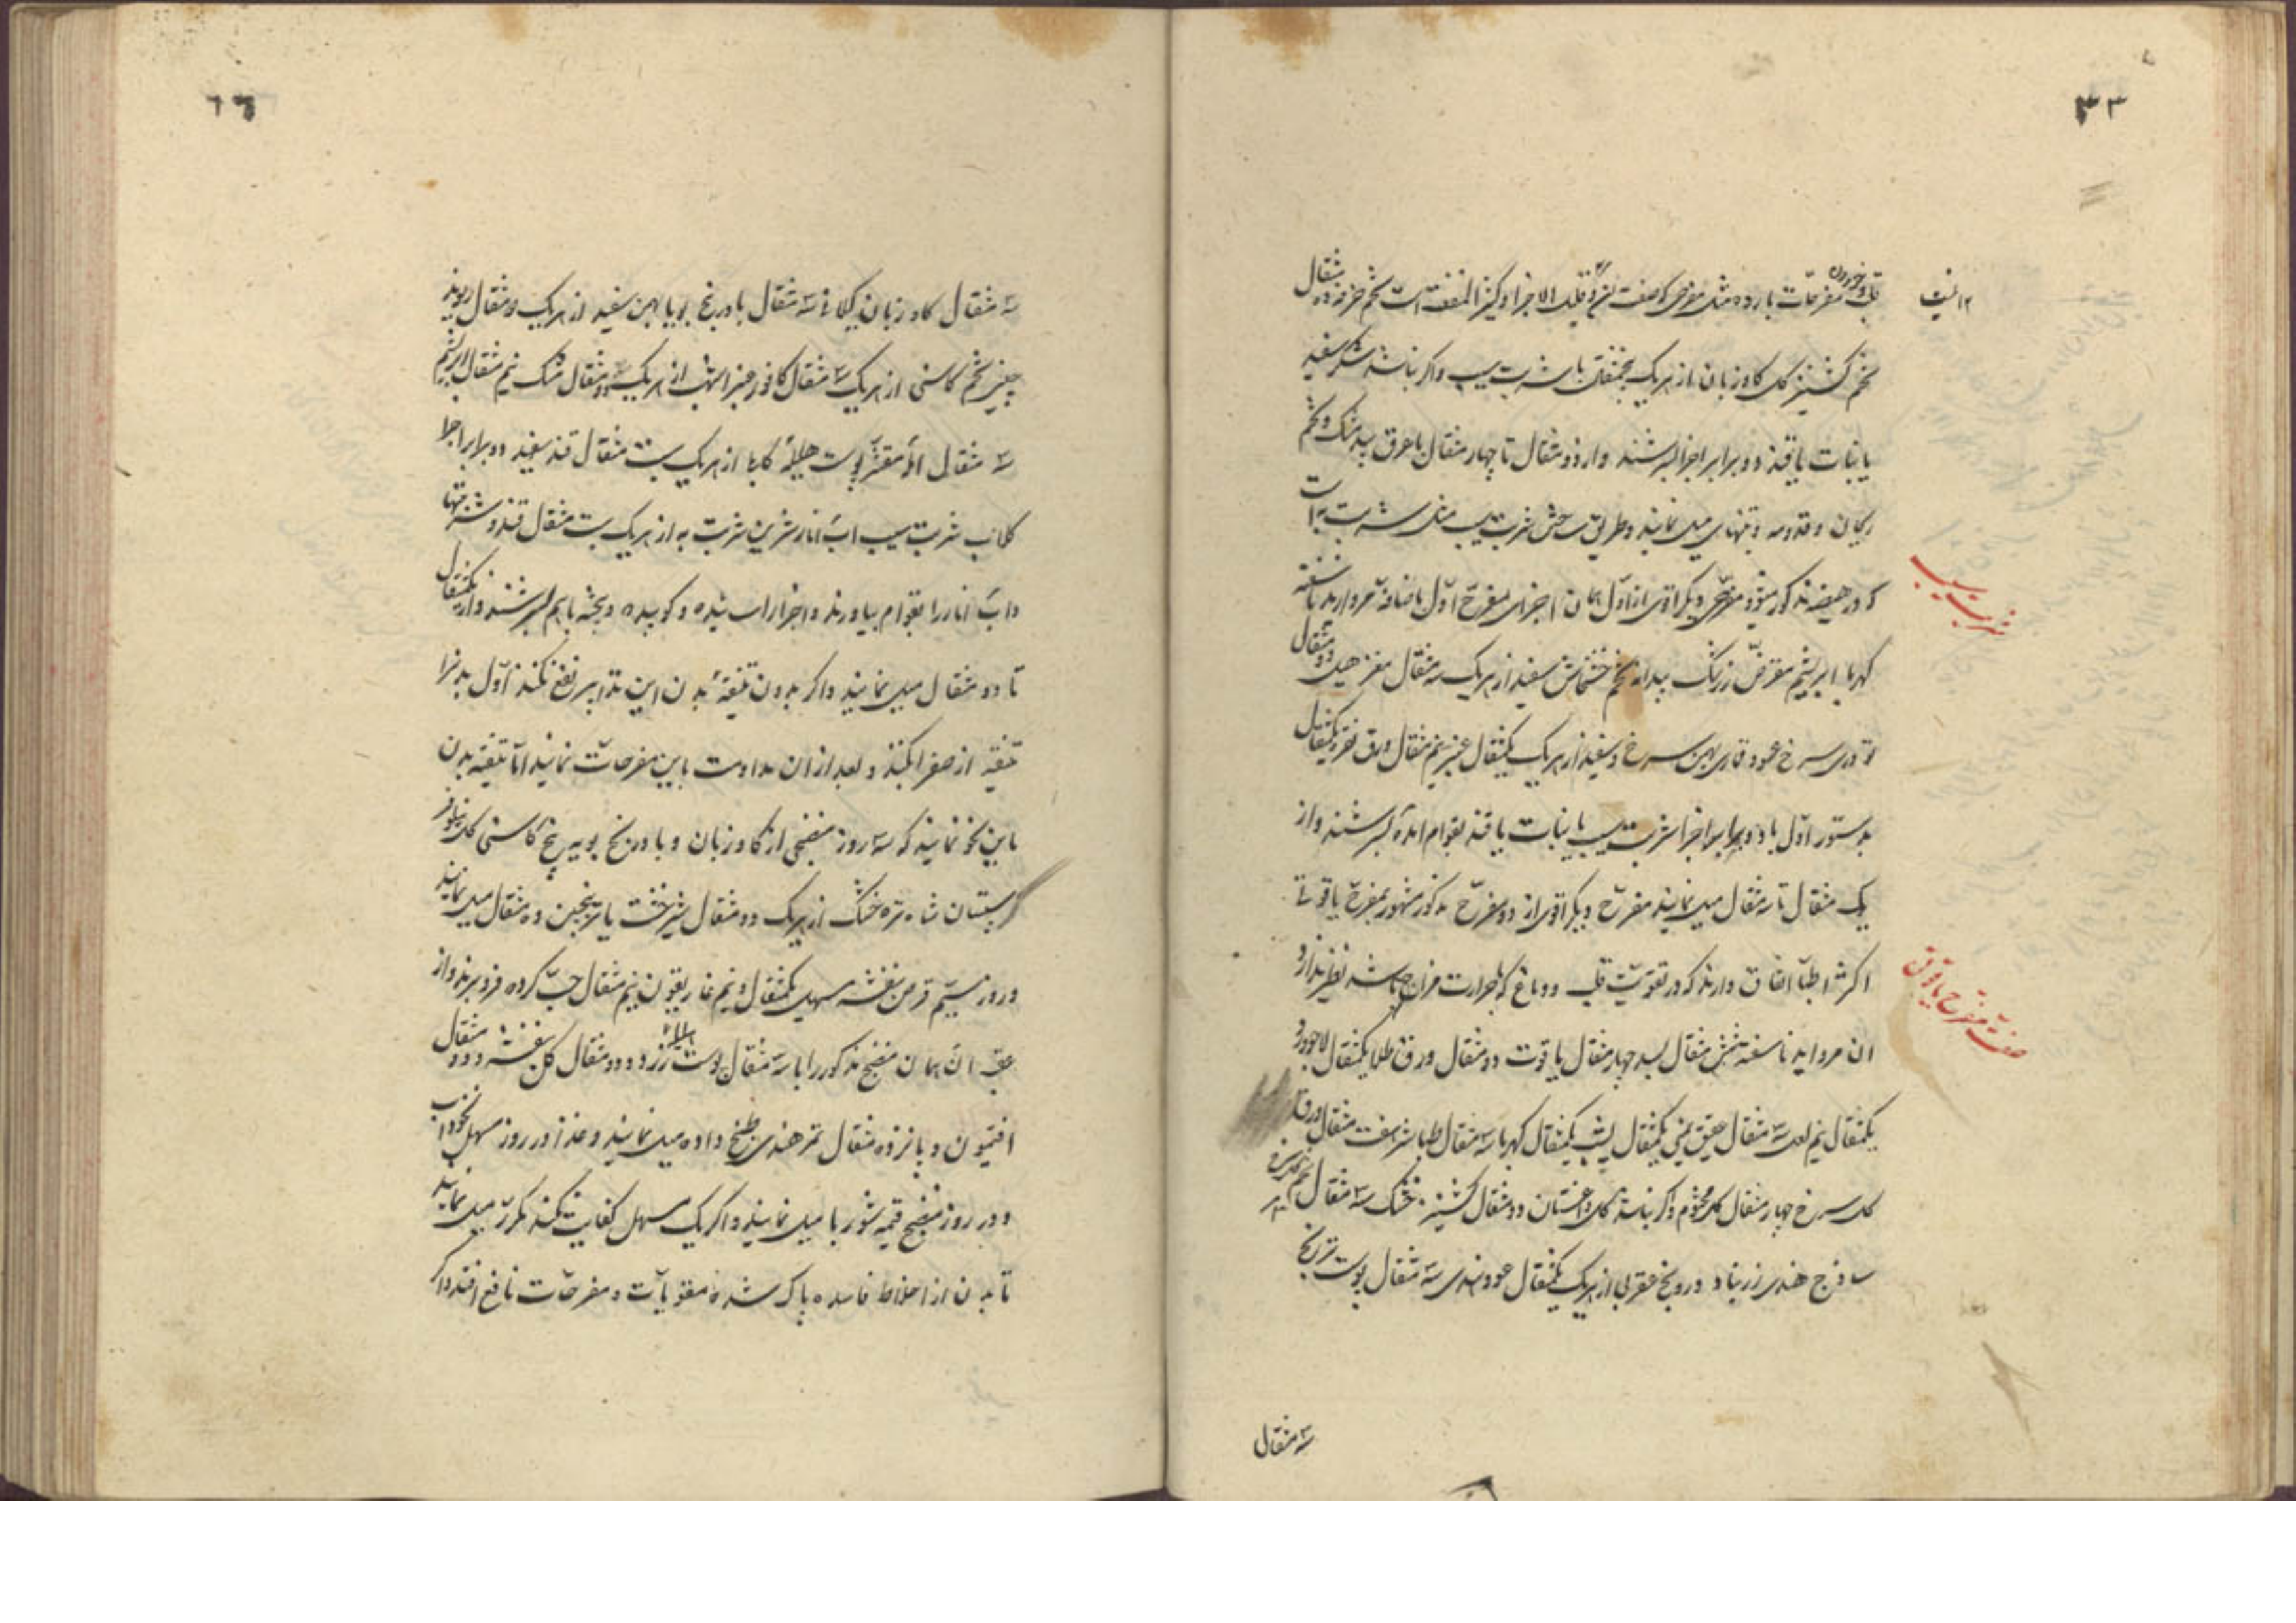 ٣٣
قلب و خوردن مفرحات بارده مثل مفرحی که صفت قلیل الاجزا و کثیر المنفعت است تخم خرفه ده مثقال
تخم کشنیز گل کاوزبان از هریک پنجمثقال با شربت سیب و اگر نباشد شکر سفید
یا نبات یا قند دو برابر اجزا بسرشند و از دو مثقال تا چهار مثقال با عرق بید مشک و تخم
ریحان و قدومه و تنهائی میل نمایند و طریق ساختن شربت سیب مثل شربت به است
که در هیضه مذکور میشود مفرحی دیگر اقوی از اول همان اجزای مفرح اول باضافه مروارید ناسفته
شربت سیب
کهربا ابریشم مقرض زرشک بیدانه تخم خشخاش سفید از هریک سه مثقال مغز هیل دو مثقال
تودری سرخ عود قماری بهمن سرخ و سفید از هریک یکمثقال عنبر نیم مثقال ورق نقره یکمثقال
بدستور اول با دو برابر اجزا شربت سیب یا نبات یا قند بقوام آمده بسرشند و از
یک مثقال تا سه مثقال میل نمایند مفرح دیگر اقوی از دو مفرح مذکور مشهور بمفرح یاقوتی
اکثر اطبا اتفاق دارند که در تقویت قلب و دماغ که با حرارت مزاج باشد نظیر ندارد
صفت مفرح یاقوتی
ان مروارید ناسفته شش مثقال بسد چهار مثقال یاقوت دو مثقال ورق طلا یکمثقال لاجورد
یکمثقال نیم لعل سه مثقال عقیق یمنی یکمثقال یشب یکمثقال کهربا سه مثقال طباشیر هفت مثقال ورق
گل سرخ چهار مثقال گل مختوم و اگر نباشد گل داغستان دو مثقال کشنیز خشک سه مثقال تخم
ساذج هندی زرنباد درونج عقربی از هریک یکمثقال عود هندی سه مثقال پوست ترنج
سه مثقال
سه مثقال کاوزبان گیلانی سه مثقال بادرنج بویا بهمن سفید از هریک دو مثقال ریوند
چینی تخم کاسنی از هریک سه مثقال کافور عنبر اشهب از هریک دو مثقال مشک نیم مثقال ابریشم
سه مثقال امله مقشر پوست هلیله کابلی از هریک بیست مثقال قند سفید دو برابر اجزا
گلاب شربت سیب اب انار شیرین شربت به از هریک بیست مثقال قند و شربتها
و اب انار را بقوام بیاورند و اجزا را سائیده و کوبیده و بیخته باهم بسرشند و از یکمثقال
تا دو مثقال میل نمایند و اگر بدون تنقیه بدن این تدابیر نفع نکند اول بدن را
تنقیه از صفرا بکنند و بعد از ان مداومت باین مفرحات نمایند اما تنقیه بدن
باین نحو نمایند که سه روز منضجی از کاوزبان و بادرنج بویه بیخ کاسنی گل نیلوفر
سپستان شاه تره خشک از هریک دو مثقال شیرخشت یا ترنجبین ده مثقال میل نمایند
و روز سیم قرص بنفشه مسهل یکمثقال و نیم غاریقون نیم مثقال حب کرده فرو برند و از
عقب ان همان منضج مذکور را با سه مثقال پوست هلیله زرد و دو مثقال گل بنفشه و دو مثقال
افتیمون و پانزده مثقال تمر هندی طبخ داده میل نمایند و غذا در روز مسهل نخوداب
و در روز منضج قیمه شوربا میل نمایند و اگر یک مسهل کفایت نکند مکرر میل نمایند
تا بدن از اخلاط فاسده پاک شده مقویات و مفرحات نافع افتد و اگر